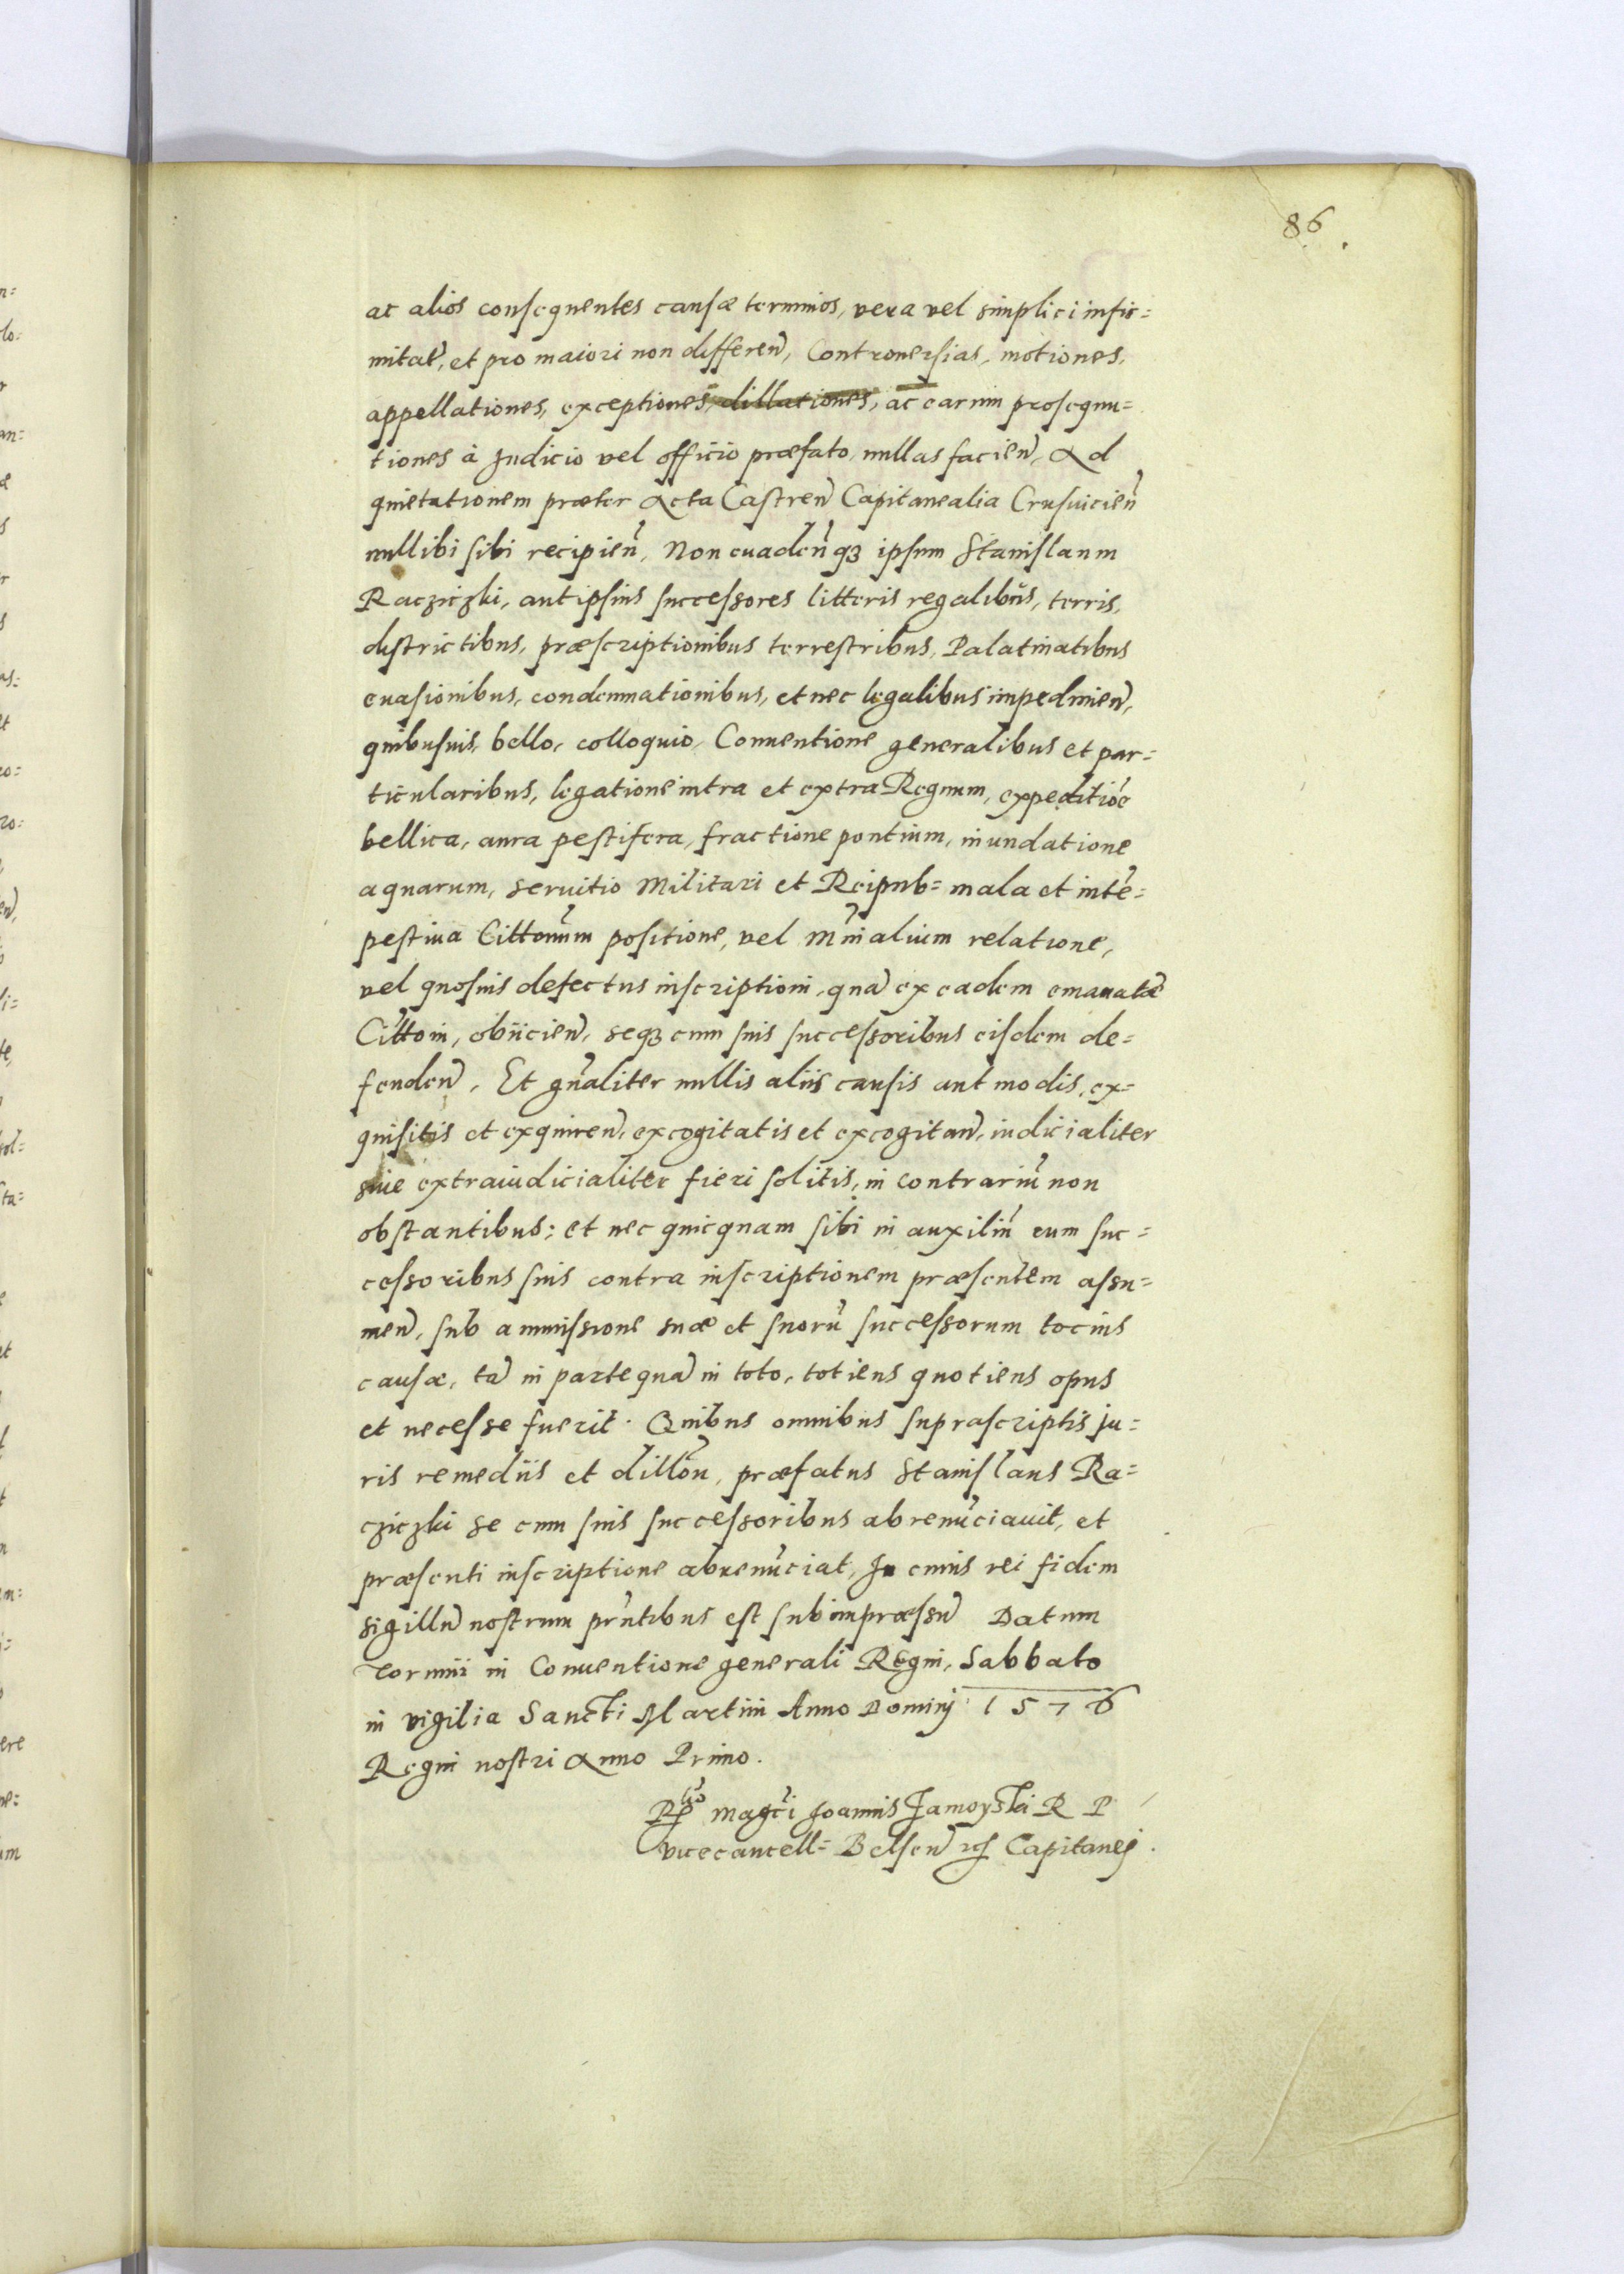 86
ac alios consequentes causæ terminos, vera vel simplici infir=
mitat̃, et pro maiori non differeñ, Controuersias, motiones,
appellationes, exceptiones, dillationes, ac earum prosequu=
tiones à Judicio vel officio præfato nullas facieñ, Ad
quietationem præter Acta Castreñ Capitanealia Crusuicieñ
nullibi sibi recipieñ, Non euadeñq₃ ipsum Stanislaum
Racziczki, aut ipsius successores litteris regalibus, terris,
districtibus, præscriptionibus terrestribus, Palatinatibus
euasionibus, condemnationibus, et nec legalibus impedimeñ,
quibusuis, bello, colloquio, Conuentione generalibus et par=
ticularibus, legatione intra et extra Regnum, expeditiõe
bellica, aura pestifera, fractione pontium, inundatione
aquarum, seruitio Militari et Reipub= mala et intẽ=
pestiua Cittonum positione, vel Mĩnialium relatione,
vel quosuis defectus inscriptioni, quã ex eadem emanatæ
Cittõni, obiicieñ, seq₃ cum suis successoribus eisdem de=
fendeñ. Et gñaliter nullis aliis causis aut modis, ex=
quisitis et exquireñ, excogitatis et excogitañ, iudicialiter
siue extraiudicialiter fieri solitis, in contrariũ non
obstantibus; et nec quicquam sibi in auxiliũ cum suc=
cessoribus suis contra inscriptionem præsentem assu=
meñ, sub ammissione suæ et suorũ successorum tocius
causæ, tã in parte quã in toto, totiens quotiens opus
et necesse fuerit. Quibus omnibus suprascriptis ju=
ris remediis et dillõnũ, præfatus Stanislaus Ra=
cziczki se cum suis successoribus abrenũciauit, et
præsenti inscriptione abrenũciat, In cuius rei fidem
sigillũ nostrum prñtibus est subimpræssũ Datum
Torunii in Conuentione generali Regni, Sabbato
in vigilia Sancti Martini Anno Dominj 1576
Regni nostri Anno Primo.
Rẽlõ Magc̃i Joannis Zamoyski R P
vicecancell= Belseñ etc Capitanej.